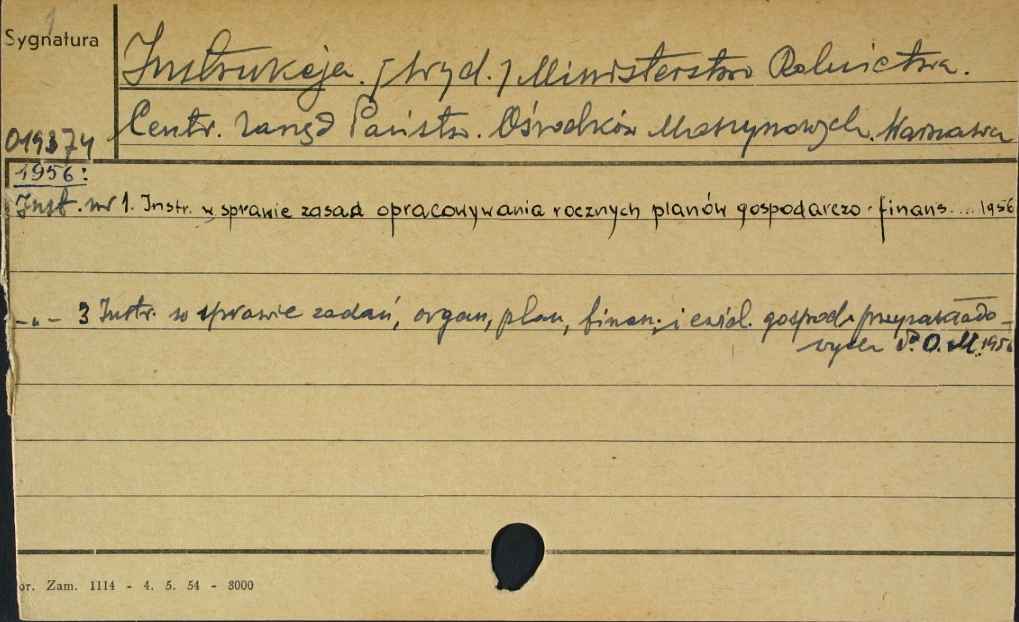 Sygnatura
Instrukcja. [Wyd.] Ministerstwo Rolnictwa.
019374 Centr. Zarząd Państw. Ośrodków Maszynowych. Warszawa
1956:
Inst. nr 1. Instr. w sprawie zasad opracowywania rocznych planów gospodarczo-finans.... 1956
-„- 3 Instr. w sprawie zadań, organ, plan, finan. i ewid. gospod.
wych P.O.M. 1956
or. Zam. 1114 - 4. 5. 54 - 3000